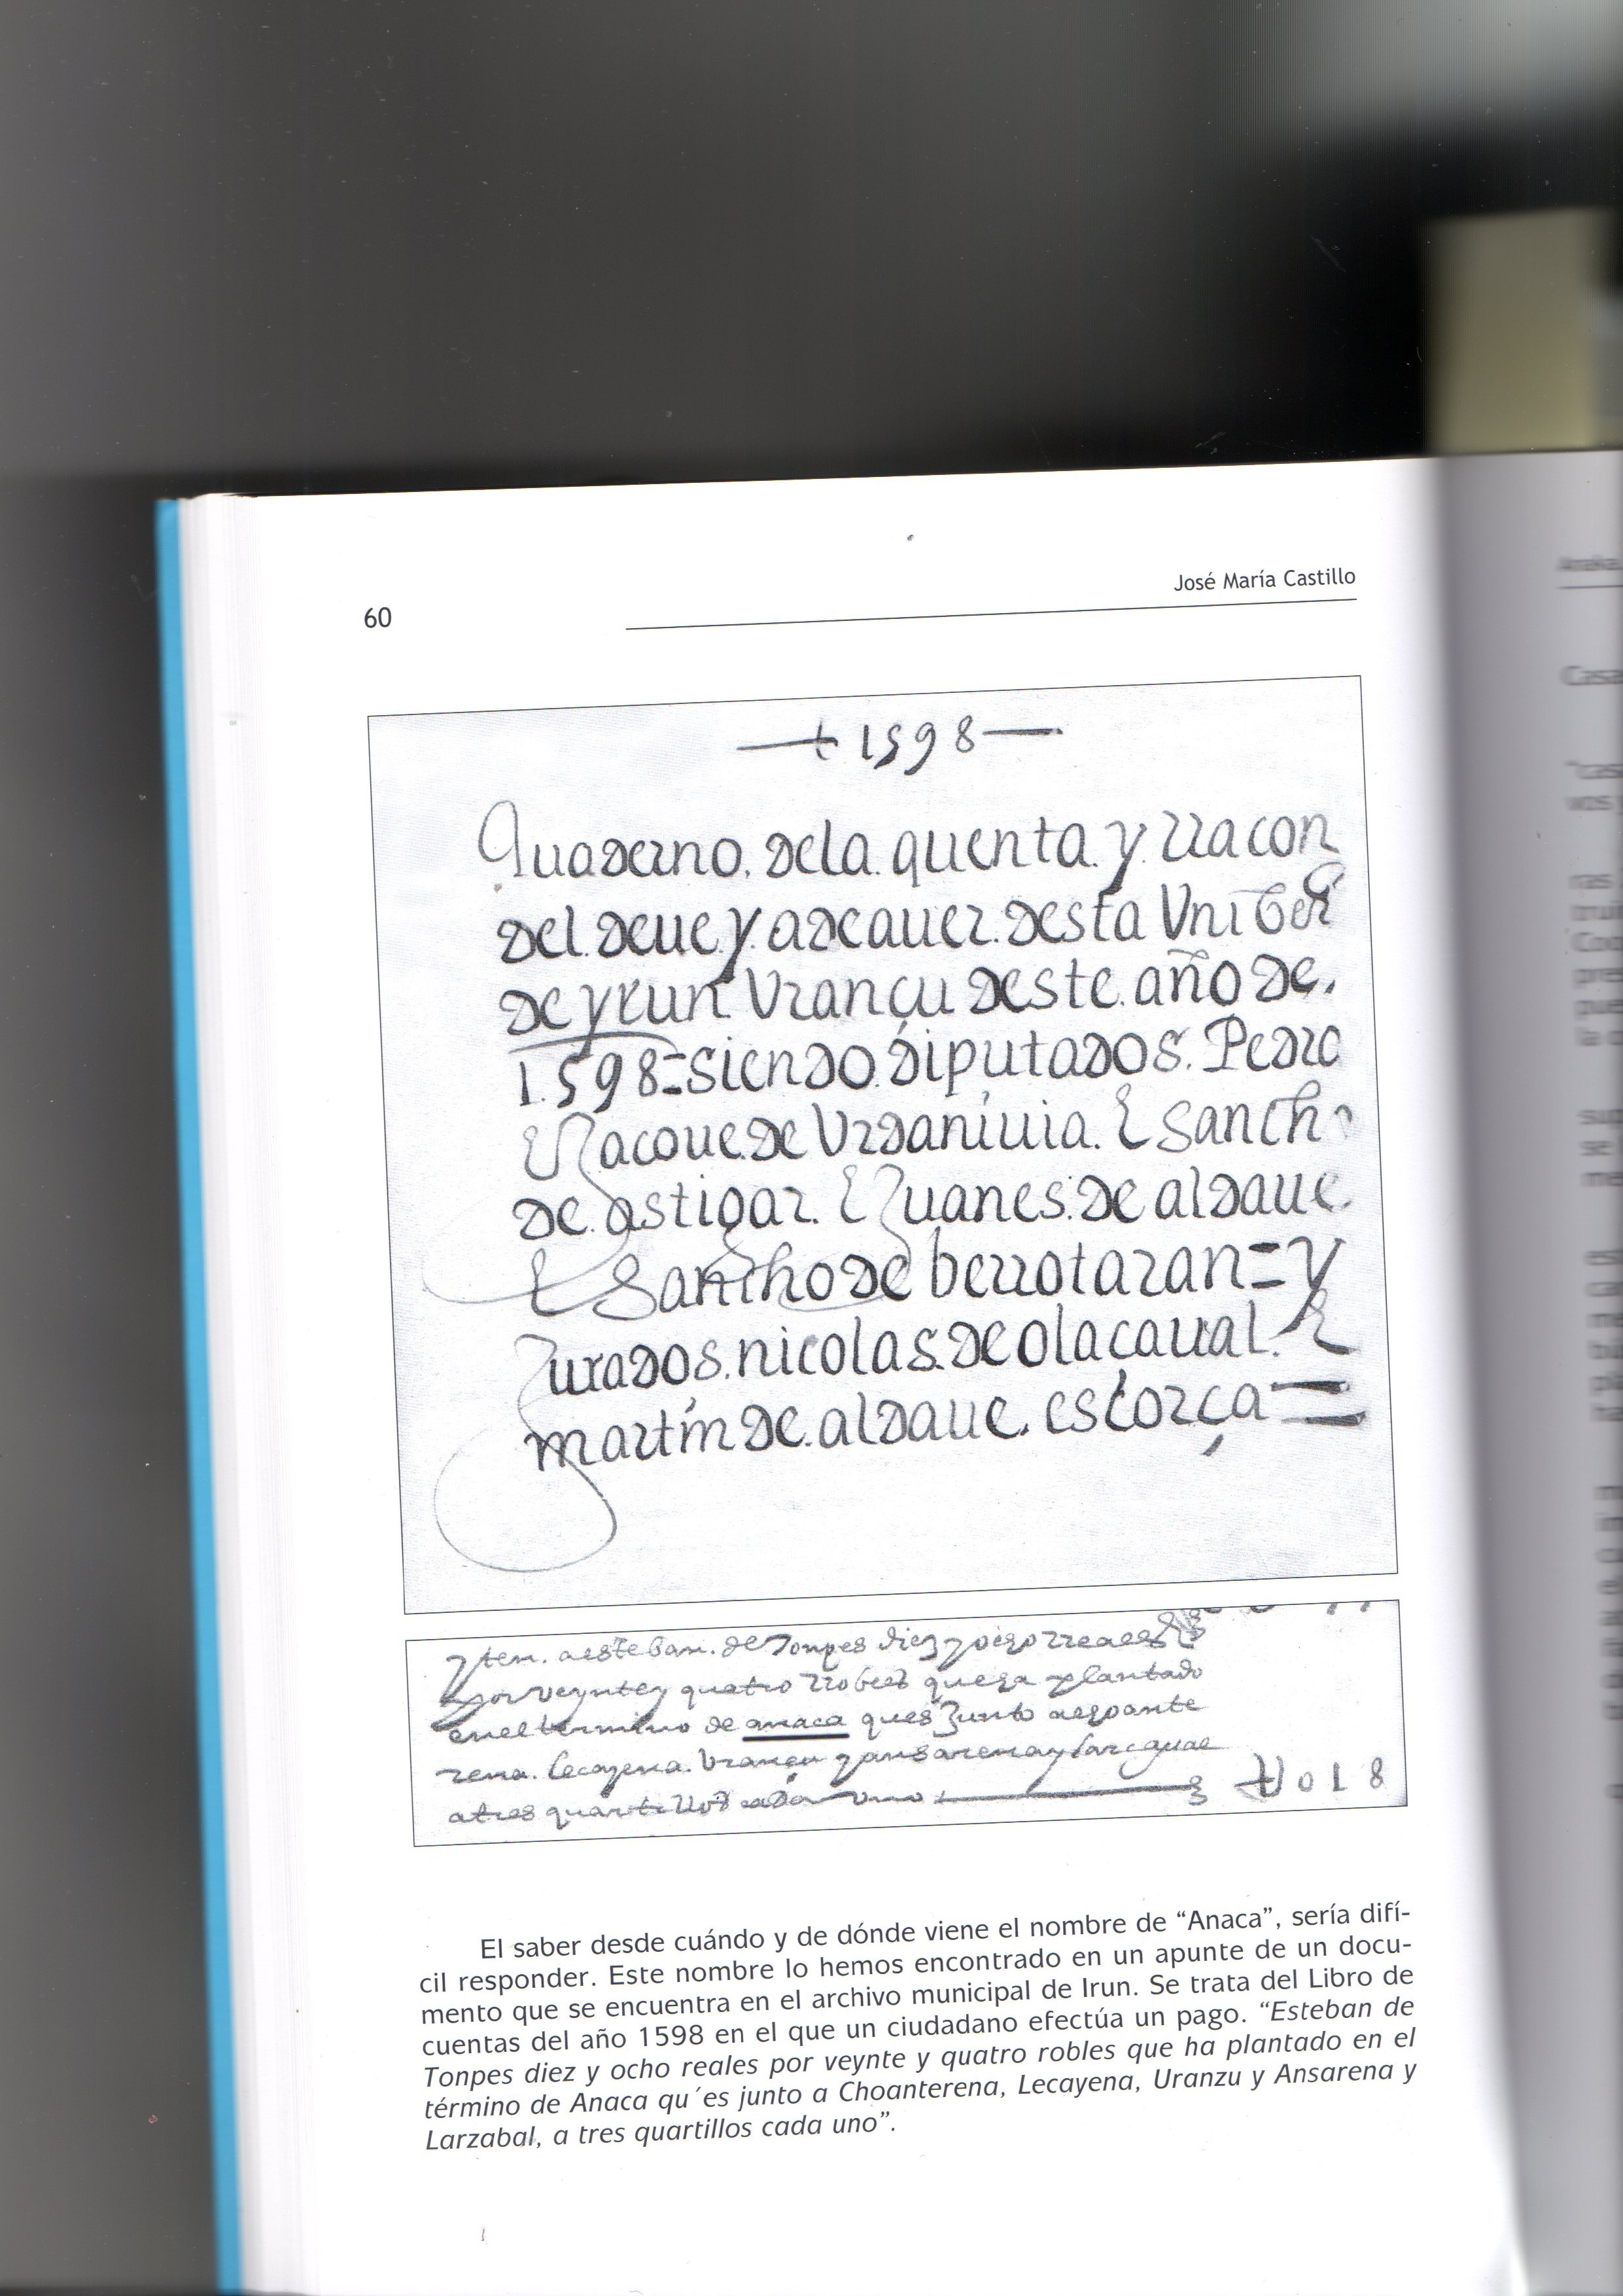 José María Castillo
60
+ 1598
Quaderno. dela. quenta. y. rracon
del. deue y. adeauer. desta Vniber
de yrun Vrançu deste. año de.
1.598=siendo. diputados. Pedro
de Vrdaniuia. E sancho
de. astigar. E Juanes. de aldaue.
E Sancho de berrotaran = y
Jurados. nicolas. de olaçaual. E
martin de. aldaue. escorça =
yten. a esteban. de Tonpes diez y ocho rreales
por veynte y quatro rrobles que ha plantado
en el termino de anaca ques Junto a choante
rena. Lecayena. Vrançu y ansarena y larçaual
a tres quartillos cada uno
U 0 1 8
El saber desde cuándo y de dónde viene el nombre de “Anaca”, sería difí-
cil responder. Este nombre lo hemos encontrado en un apunte de un docu-
mento que se encuentra en el archivo municipal de Irun. Se trata del Libro de
cuentas del año 1598 en el que un ciudadano efectúa un pago. “Esteban de
Tonpes diez y ocho reales por veynte y quatro robles que ha plantado en el
término de Anaca qu´es junto a Choanterena, Lecayena, Uranzu y Ansarena y
Larzabal, a tres quartillos cada uno”.